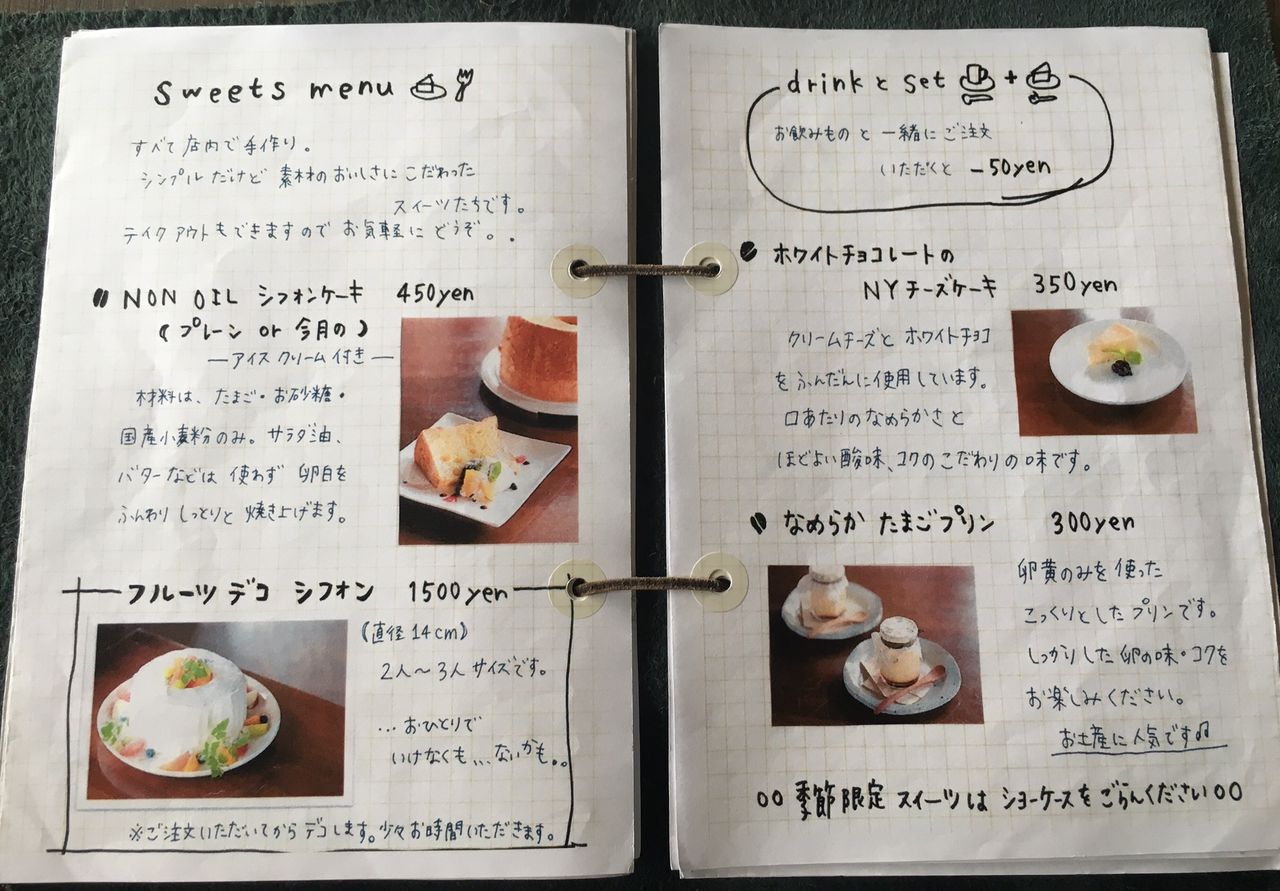 sweets menu
すべて店内で手作り。
シンプルだけど 素材のおいしさに こだわった
スイーツたちです。
テイクアウトもできますので お気軽に どうぞ。.
NON OIL シフォンケーキ 450yen
(プレーン or 今月の)
—アイスクリーム付き—
材料は、たまご・お砂糖・
国産小麦粉のみ。サラダ油、
バターなどは 使わず 卵白を
ふんわり しっとりと 焼き上げます。
フルーツデコ シフォン 1500yen
《直径14cm》
2人〜3人サイズです。
...おひとりで
いけなくも、、、ないかも。。
※ご注文いただいてから デコします。少々お時間いただきます。
drink と set + 
お飲みものと 一緒に ご注文
いただくと -50yen
ホワイトチョコレートの
NYチーズケーキ 350yen
クリームチーズと ホワイトチョコ
をふんだんに使用しています。
口あたりのなめらかさと
ほどよい酸味、コクのこだわりの味です。
なめらか たまごプリン 300yen
卵黄のみを使った
こっくりとしたプリンです。
しっかりした卵の味・コクを
お楽しみください。
お土産に人気です♫
○○ 季節限定 スイーツは ショーケースをごらんください ○○